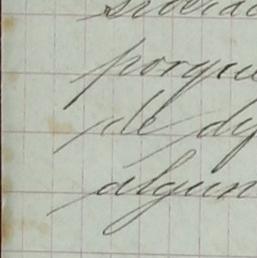 porque
de dy
algun